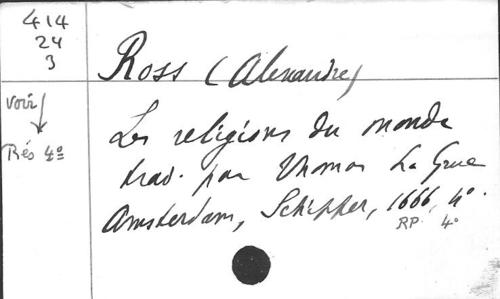 414
24
3
Ross (Alexandre)
voir
Rés 4º
Les religions du monde
trad. par Thomas La Grue
Amsterdam, Schipper, 1666, 4º.
RP 4º